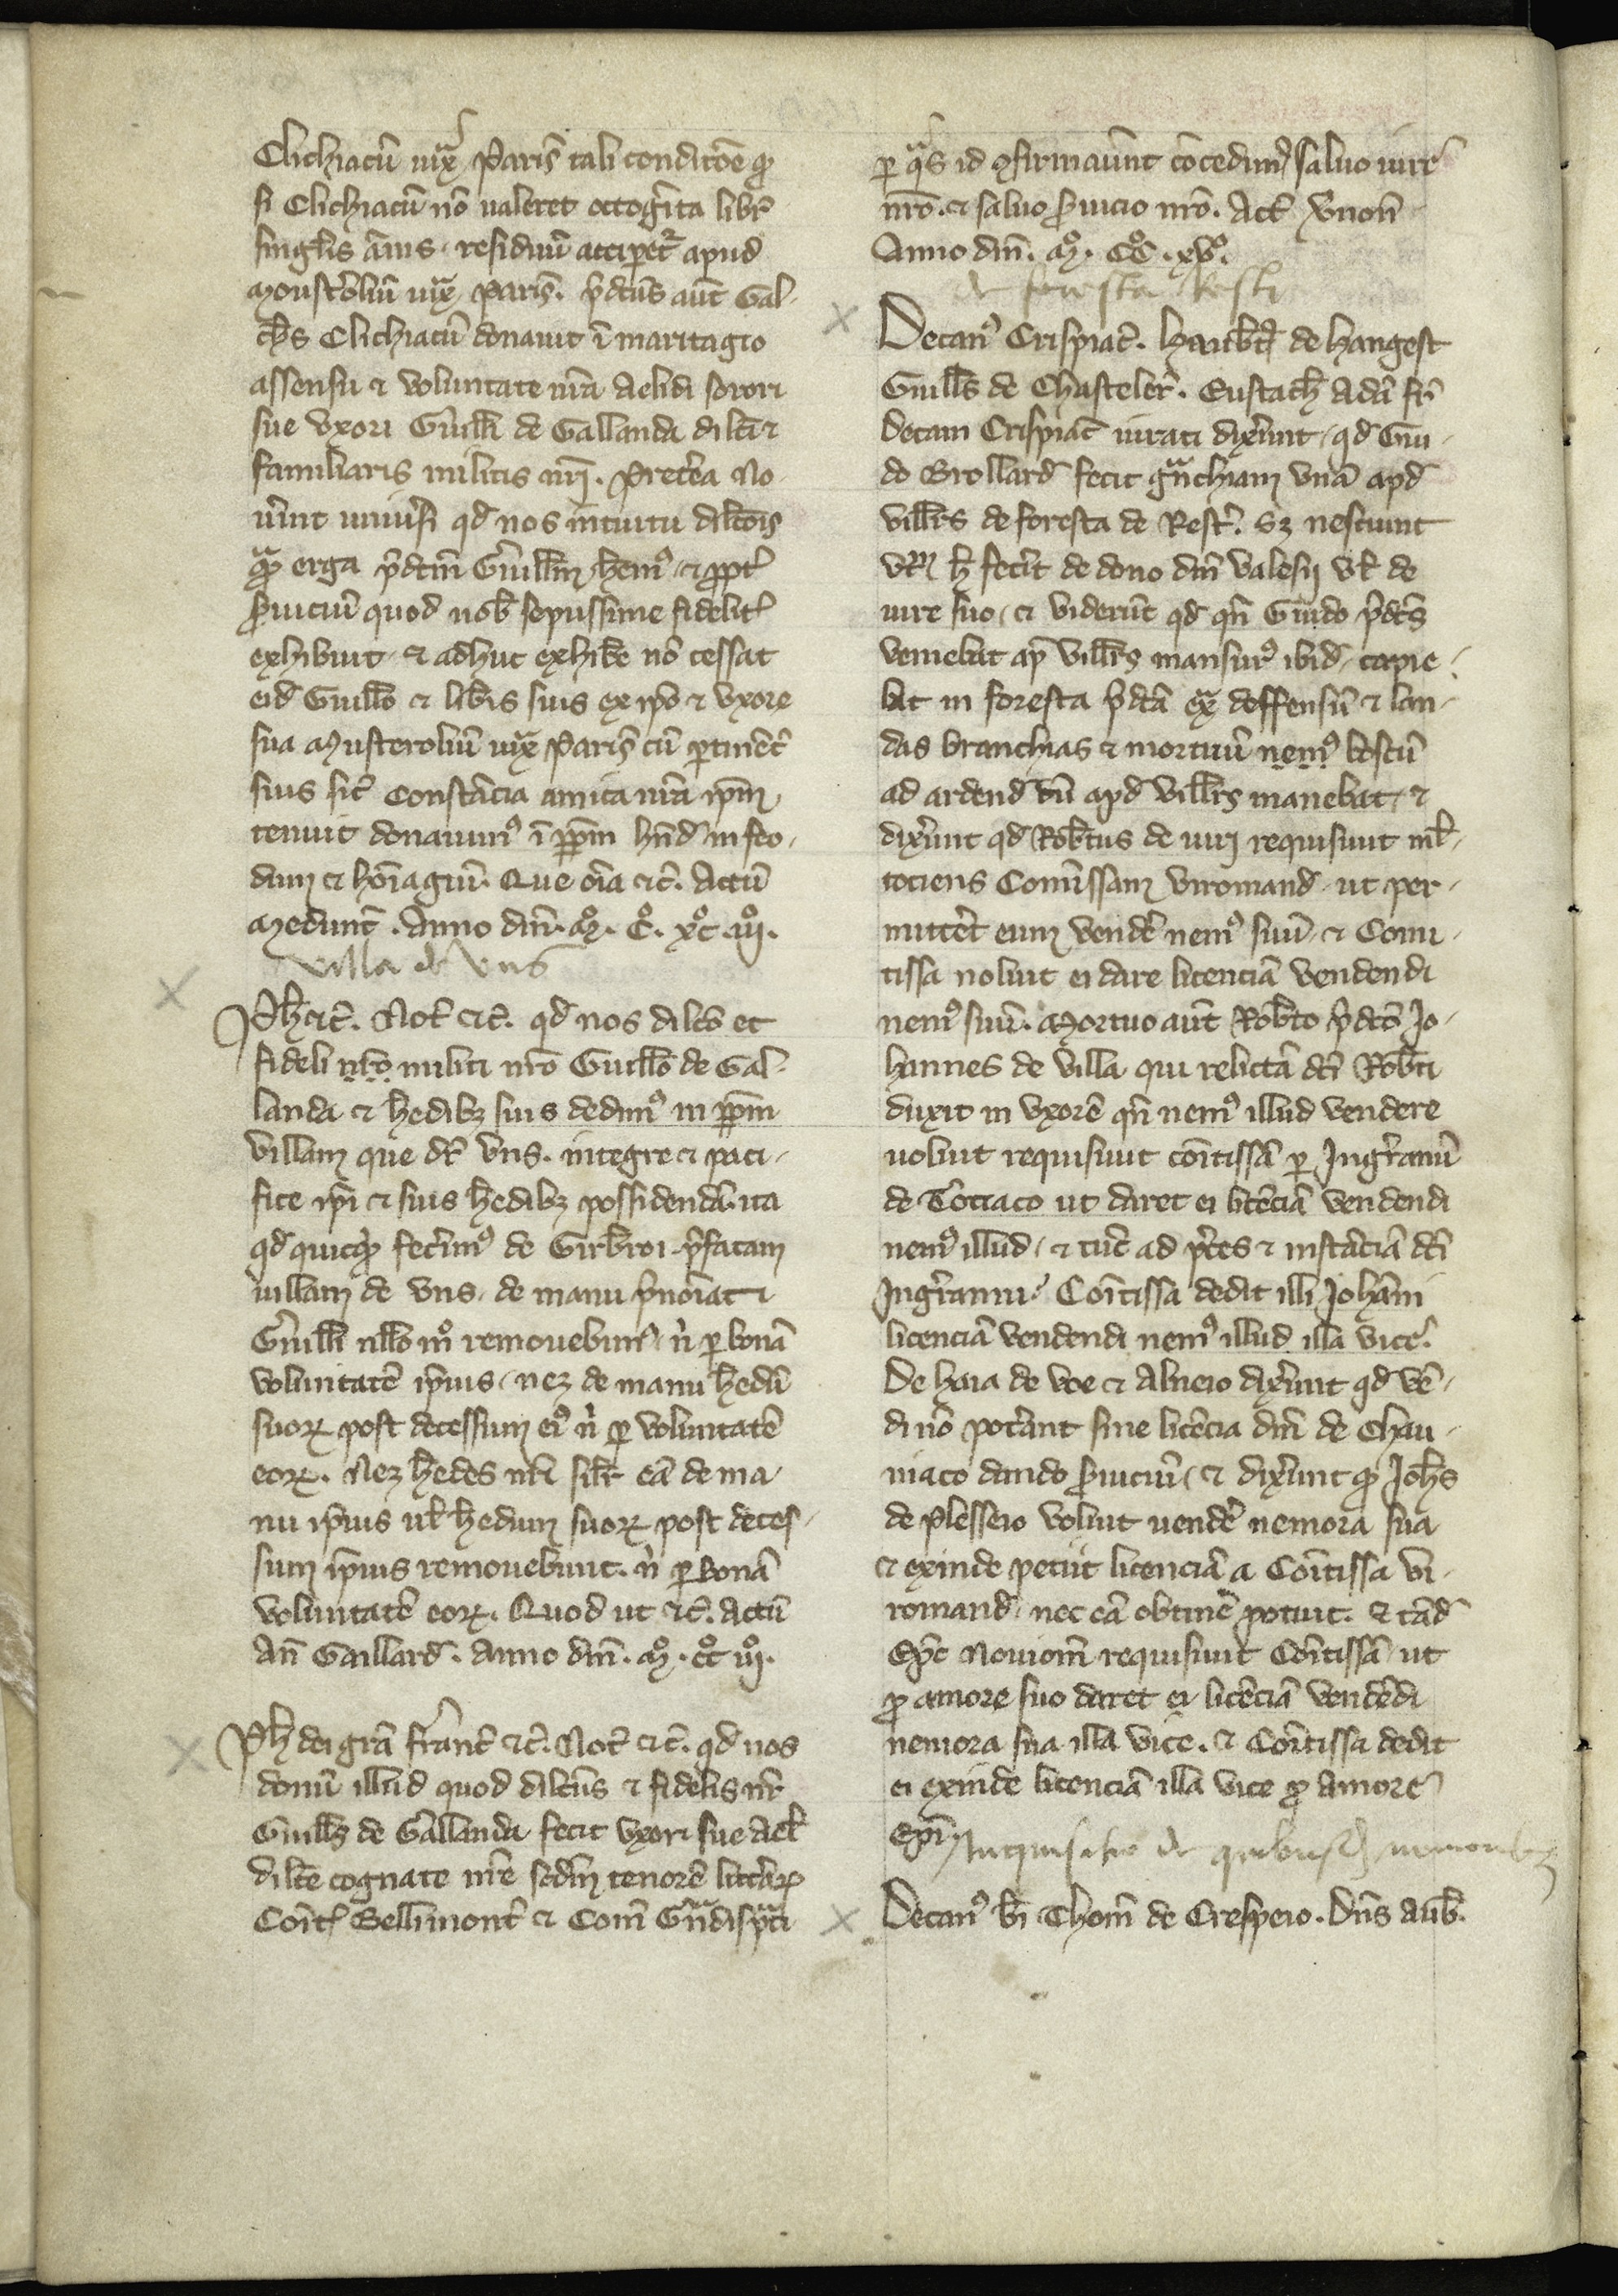 Clichiacū iuxͣ Parisˀ tali condicōe qͦ
si Clichiacū nō ualeret octogīta libr̄
singlis ānis. residuū acciꝑetʳ apud
Monstˀoliū iuxͣ Parisˀ. p̄dcūs aūt Gal-
chˀs Clichiacū donauit ī maritagio
assensu ⁊ voluntate nr̄a Aelidi sorori
sue vxori Guill̄i de Gallanda dilc̄i ⁊
familiaris militis nr̄i. Pretˀea No
uˀint uniuˀsi qd̄ nos intuitu dilcōis
quͣ erga p̄dcm̄ Guill̄m hēmꝰ ⁊ ꝓptˀ
ẜuiciū quod nob̄ sepissime fidelitˀ
exhibuit ⁊ adhuc exhibe nō cessat
eid̄ Guill̄o ⁊ lib̄is suis ex ip̄o ⁊ vxore
sua Musterolium iuxͣ Parisˀ cū ꝑtinētˀ
suis sic̄ Constācia amita nr̄a ip̄m
tenuit donauimꝰ ī ꝑpm̄ hn̄d̄ in feo-
dum ⁊ hōiagiū. Que oīa ⁊c̄. Actū
Medunt̄. Anno dn̄i. Mͦ. Cͦ. xͦcͦ. iijͦ.
villa de Vns
Ph̄ ⁊c̄. Not̄ ⁊c̄. qd̄ nos dilc̄o et
fideli nr̄o militi nr̄o Guill̄o de Gal-
landa ⁊ hˀedibꝫ suis dedimꝰ in ꝑpm̄
villam que dr̄ Vns. integre ⁊ paci-
fice ip̄i ⁊ suis hˀedibꝫ possidendā. ita
qd̄ quicqͥd fecˀimꝰ de Girb̄roi p̄fatam
uillam de Vns. de manu p̄noīati
Guill̄i nllo mͦ remouebimꝰ nˡ ꝑ bonā
voluntatē ip̄ius. neꝫ de manu hˀedū
suoꝝ post decessum eiꝰ nˡ ꝑ voluntatē
eoꝝ. Neꝫ hˀedes nr̄i silˀr eā de ma-
nu ip̄ius ul̄ hˀedum suoꝝ post deces-
sum ip̄ius remouebunt. nˡ ꝑ bonā
voluntatē eoꝝ. Quod ut ⁊c̄. Actū
An̄ Gaillard̄. Anno dn̄i. Mͦ. cͦcͦ iijͦ.
Ph̄ dei grā Franc̄ ⁊c̄. Not̄ ⁊c̄. qd̄ nos
donū illud quod dilcūs ⁊ fidelis nr̄
Guill̄s de Gallanda fecit vxori sue Ael̄
dilc̄e cognate nr̄e scd̄m tenorē littˀaꝝ
Comˀt Bellimontˀ ⁊ Com̄ Gͣndisprͣti
ꝑ qͣs id ꝯfirmauˀnt concedimꝰ saluo iure
nr̄o. ⁊ saluo ẜuicio nr̄o. Act̄ Vˀnon̄
Anno dn̄i. Mͦ. CͦCͦ. xvͦ.
de foresta Resti
Decanꝰ Crispiac̄. Haub̄tꝰ de Hangest
Guill̄s de Chastelerˀ. Eustach̄ Adā fr̄
Decani Crispiac̄ iurati dixˀunt qd̄ Gui-
do Brollard̄ fecit gͣnchiam vnā apd̄
Vill̄rs de foresta de Restˀ. Sꝫ nesciunt
vtꝝ h̄ fecˀit de dono dn̄i Valesij vl̄ de
iure suo. ⁊ viderūt qd̄ qn̄ Guido p̄dcs̄
veniebat ap̄ Vill̄rs mansurꝰ ibid̄. capie-
bat in foresta p̄dcā exͣ deffensū ⁊ lan-
das branchias ⁊ mortuū nemꝰ boscū
ad ardend̄ dū apd̄ Vill̄rs manebat. ⁊
dixˀunt qd̄ Rob̄tus de Viri requisiuit ml̄-
tociens Comitissam Viromand̄. ut per-
mittˀet eum vendˀe nemꝰ suū. ⁊ Comi-
tissa noluit ei dare licenciā vendendi
nemꝰ suū. Mortuo aūt Rob̄to p̄dcō Jo-
hannes de Villa qui relictā dc̄i Rob̄ti
duxit in vxorē qn̄ nemꝰ illud vendere
uoluit requisiuit com̄tissā ꝑ Ingˀranū
de Tociaco ut daret ei licˀenciā vendendi
nemꝰ illud. ⁊ tūc ad p̄ces ⁊ instāciā dc̄i
Ingˀranni Com̄tissa dedit illi Johāni
licenciā vendendi nemꝰ illud illa vice.
De haia de Voe ⁊ Alneio dixˀunt qd̄ vē-
di nō potˀant sine licēcia dn̄i de Chau-
niaco dando ẜuiciū. ⁊ dixˀunt qͦ Joh̄s
de Plesseio voluit uendˀe nemora sua
⁊ exinde petiit licenciā a Com̄tissa Vi-
romand̄. nec eā obtinˀe potuit. ⁊ tād̄
Ep̄c Nouiom̄ requisiuit Com̄tissā ut
ꝓ amore suo daret ei licēciā vendēdi
nemora sua illa vice. ⁊ Com̄tissa dedit
ei exinde licenciā illa vice ꝓ amore
Ep̄i.
Inquisitio de quibusd̄ nemoribꝫ
Decanꝰ bˀi Thom̄ de Crespeio. Dn̄s Aub̄.